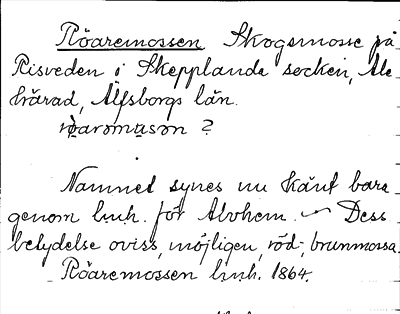 Röaremossen Skogsmosse på
Risveden i Skepplanda socken, Ale
härad, Älfsborgs län.
?
Namnet synes nu känt bara
genom lmh. för Alvhem. Dess
betydelse oviss, möjligen, röd-, brunmossa.
Röaremossen lmh. 1864.